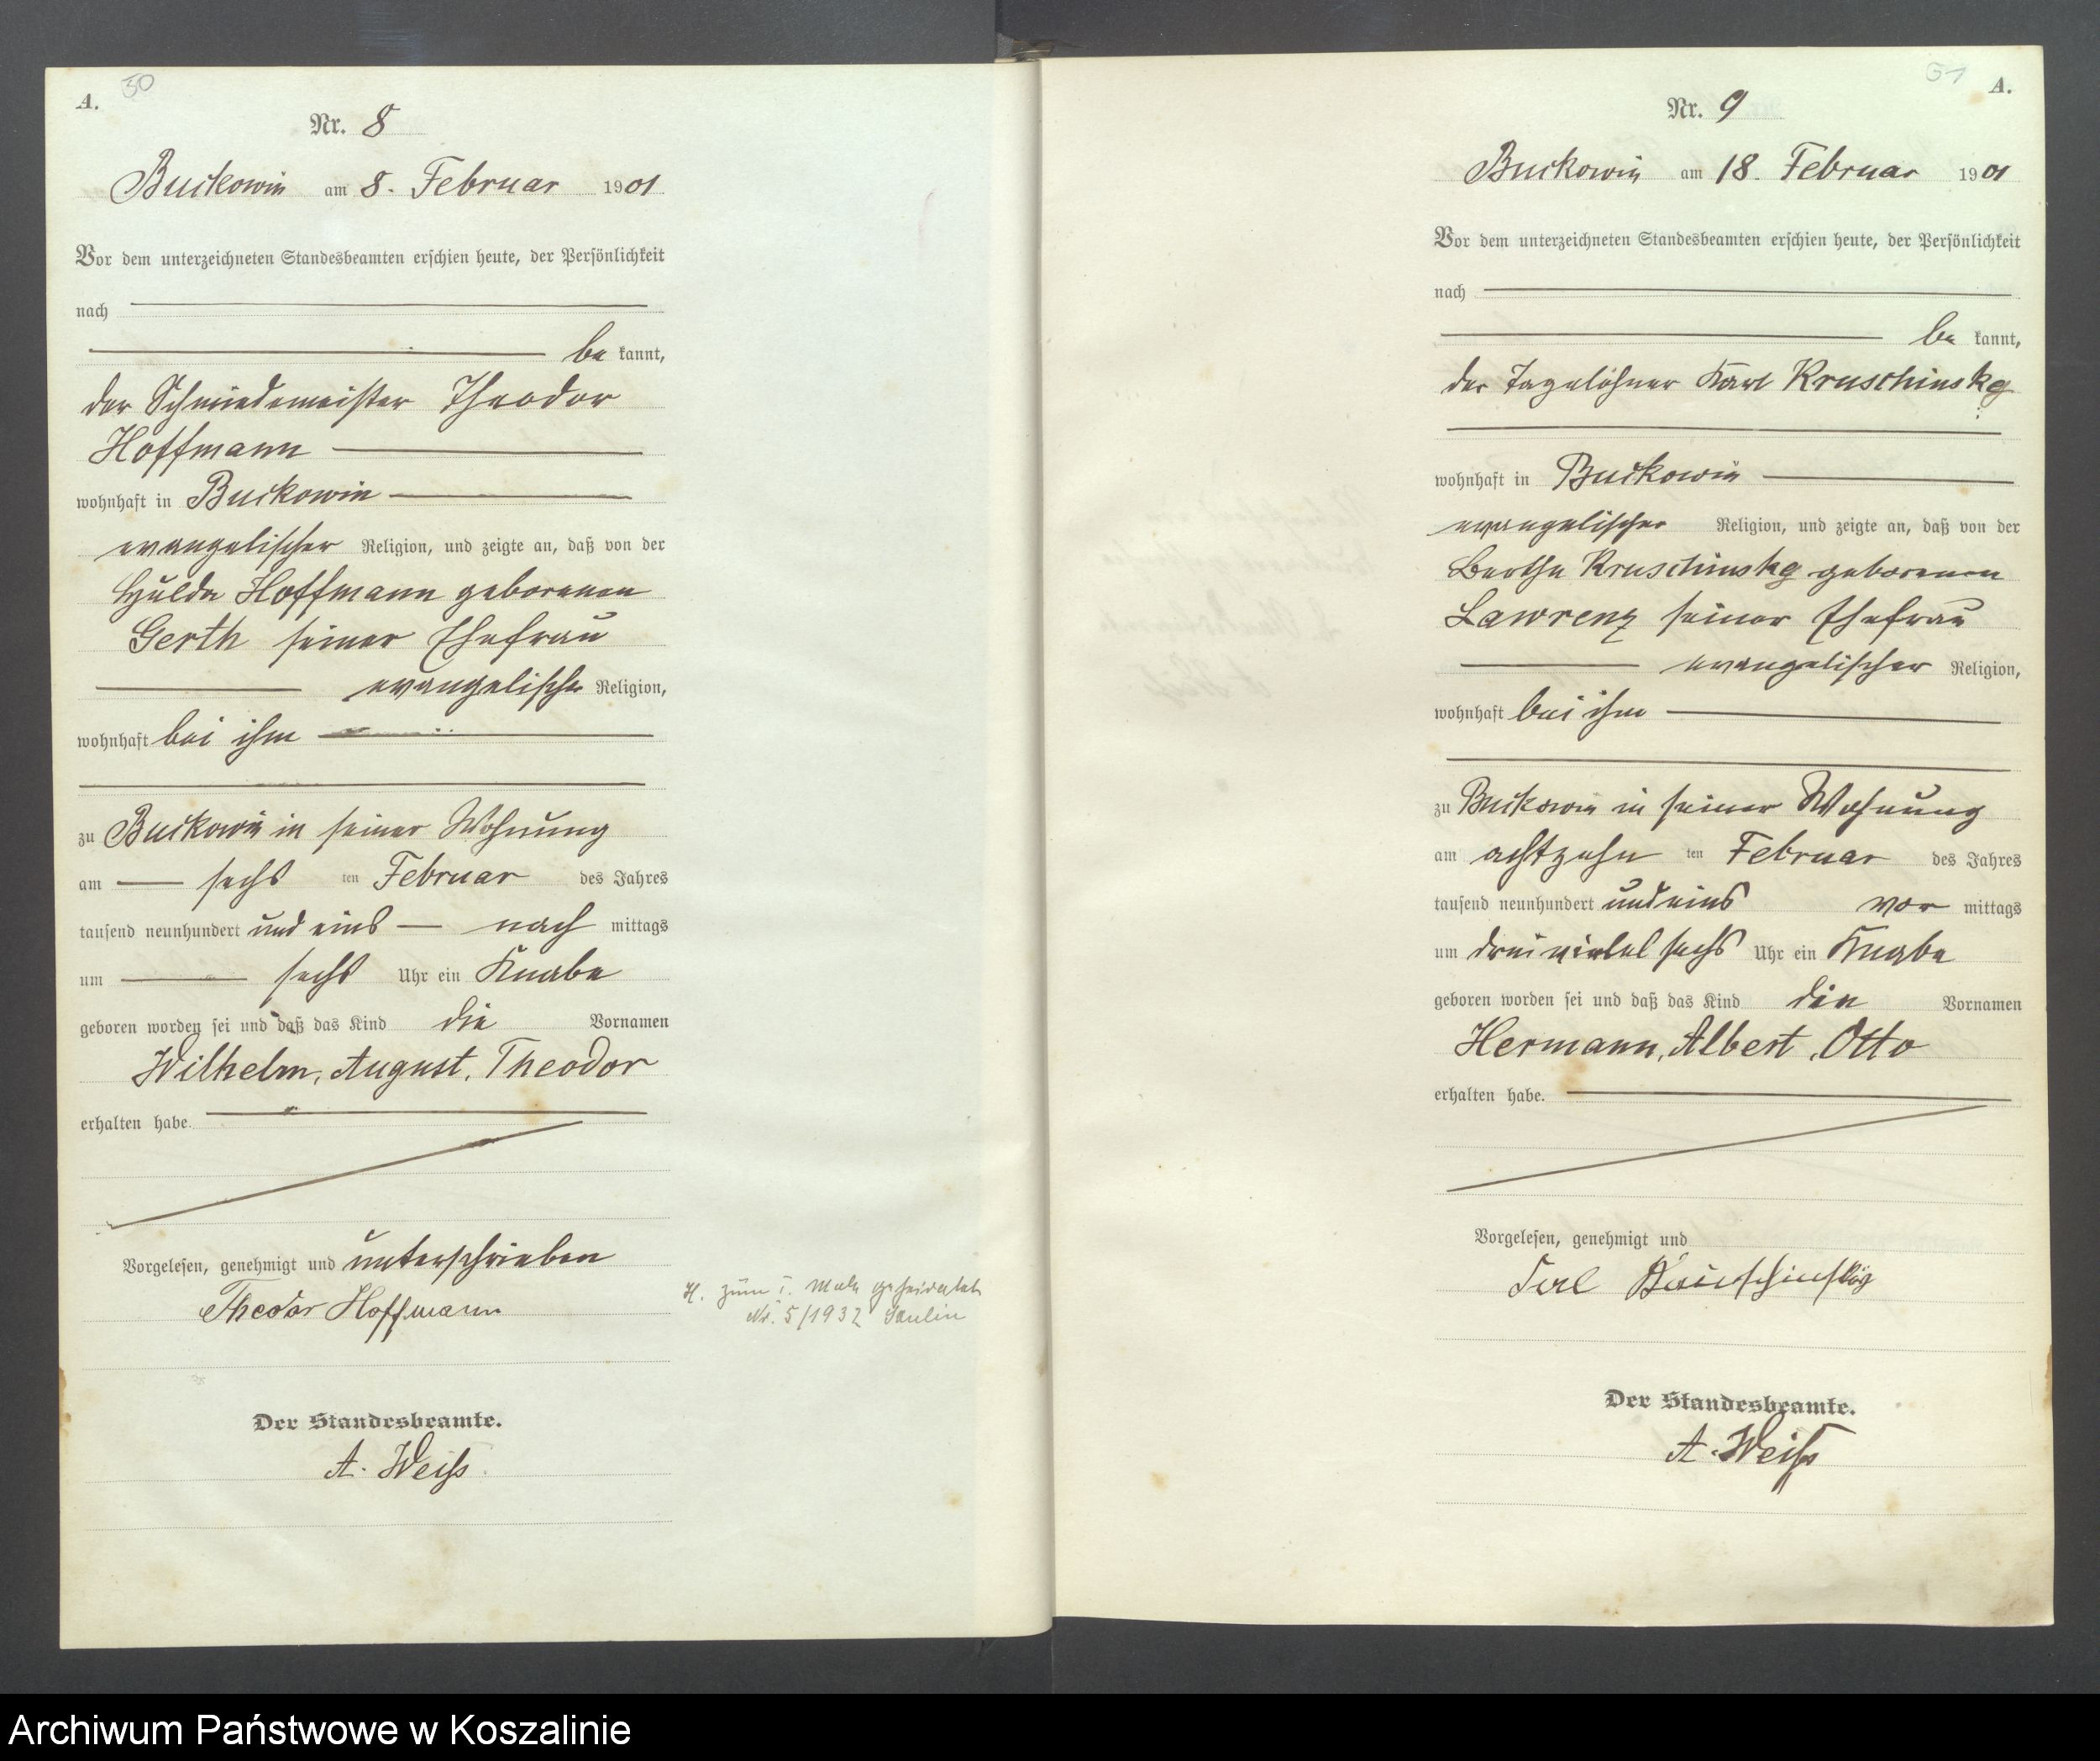 A. 50
Nr. 8
Buckowin am 8. Februar 1901
Vor dem unterzeichneten Standesbeamten erschien heute, der Persönlichkeit
nach
be kannt,
der Schmiedemeister Theodor
Hoffmann
wohnhaft in Buckowin
evangelischer Religion, und zeigte an, daß von der
Hulda Hoffmann geborenen
Gerth seiner Ehefrau
evangelischer Religion,
wohnhaft bei ihm
zu Buckowin in seiner Wohnung
am sechs ten Februar des Jahres
tausend neunhundert und eins nach mittags
um sechs Uhr ein Knabe
geboren worden sei und daß das Kind die Vornamen
Wilhelm, August, Theodor
erhalten habe.
Vorgelesen, genehmigt und unterschrieben
Theodor Hoffmann
H. zum 1. Male geheiratet
Nr. 5/1932 Saulin
Der Standesbeamte.
A. Weiß
51 A.
Nr. 9
Buckowin am 18. Februar 1901
Vor dem unterzeichneten Standesbeamten erschien heute, der Persönlichkeit
nach
be kannt,
der Tagelöhner Karl Kruschinsky
wohnhaft in Buckowin
evangelischer Religion, und zeigte an, daß von der
Bertha Kruschinsky geborenen
Lawrenz seiner Ehefrau
evangelischer Religion,
wohnhaft bei ihm
zu Buckowin in seiner Wohnung
am achtzehn ten Februar des Jahres
tausend neunhundert und eins vor mittags
um dreiviertel sechs Uhr ein Knabe
geboren worden sei und daß das Kind die Vornamen
Hermann, Albert, Otto
erhalten habe.
Vorgelesen, genehmigt und
Der Standesbeamte.
A. Weiß
Archiwum Państwowe w Koszalinie